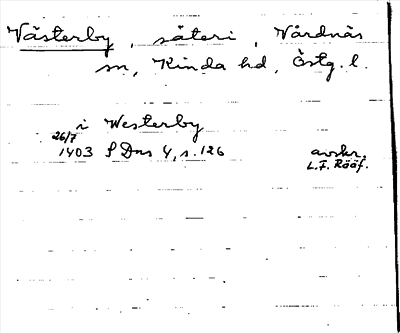 Västerby, säteri, Vårdnäs
sn, Kinda hd, Östg. l.
i Westerby
26/7
1403 SDns 4, s. 126 avskr.
L. F. Rääf.